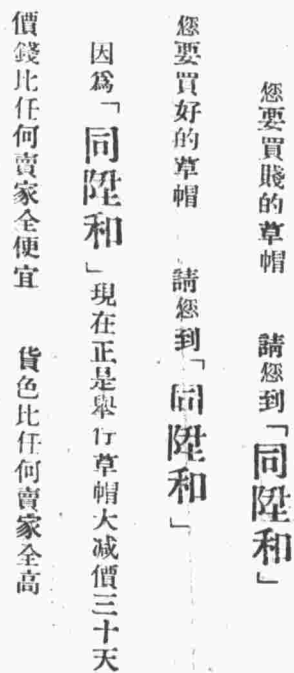 您要買賤的草帽 請您到「同陞和」
您要買好的草帽 請您到「同陞和」
因爲「同陞和」現在正是舉行草帽大減價三十天
價錢比任何賣家全便宜 貨色比任何賣家全高